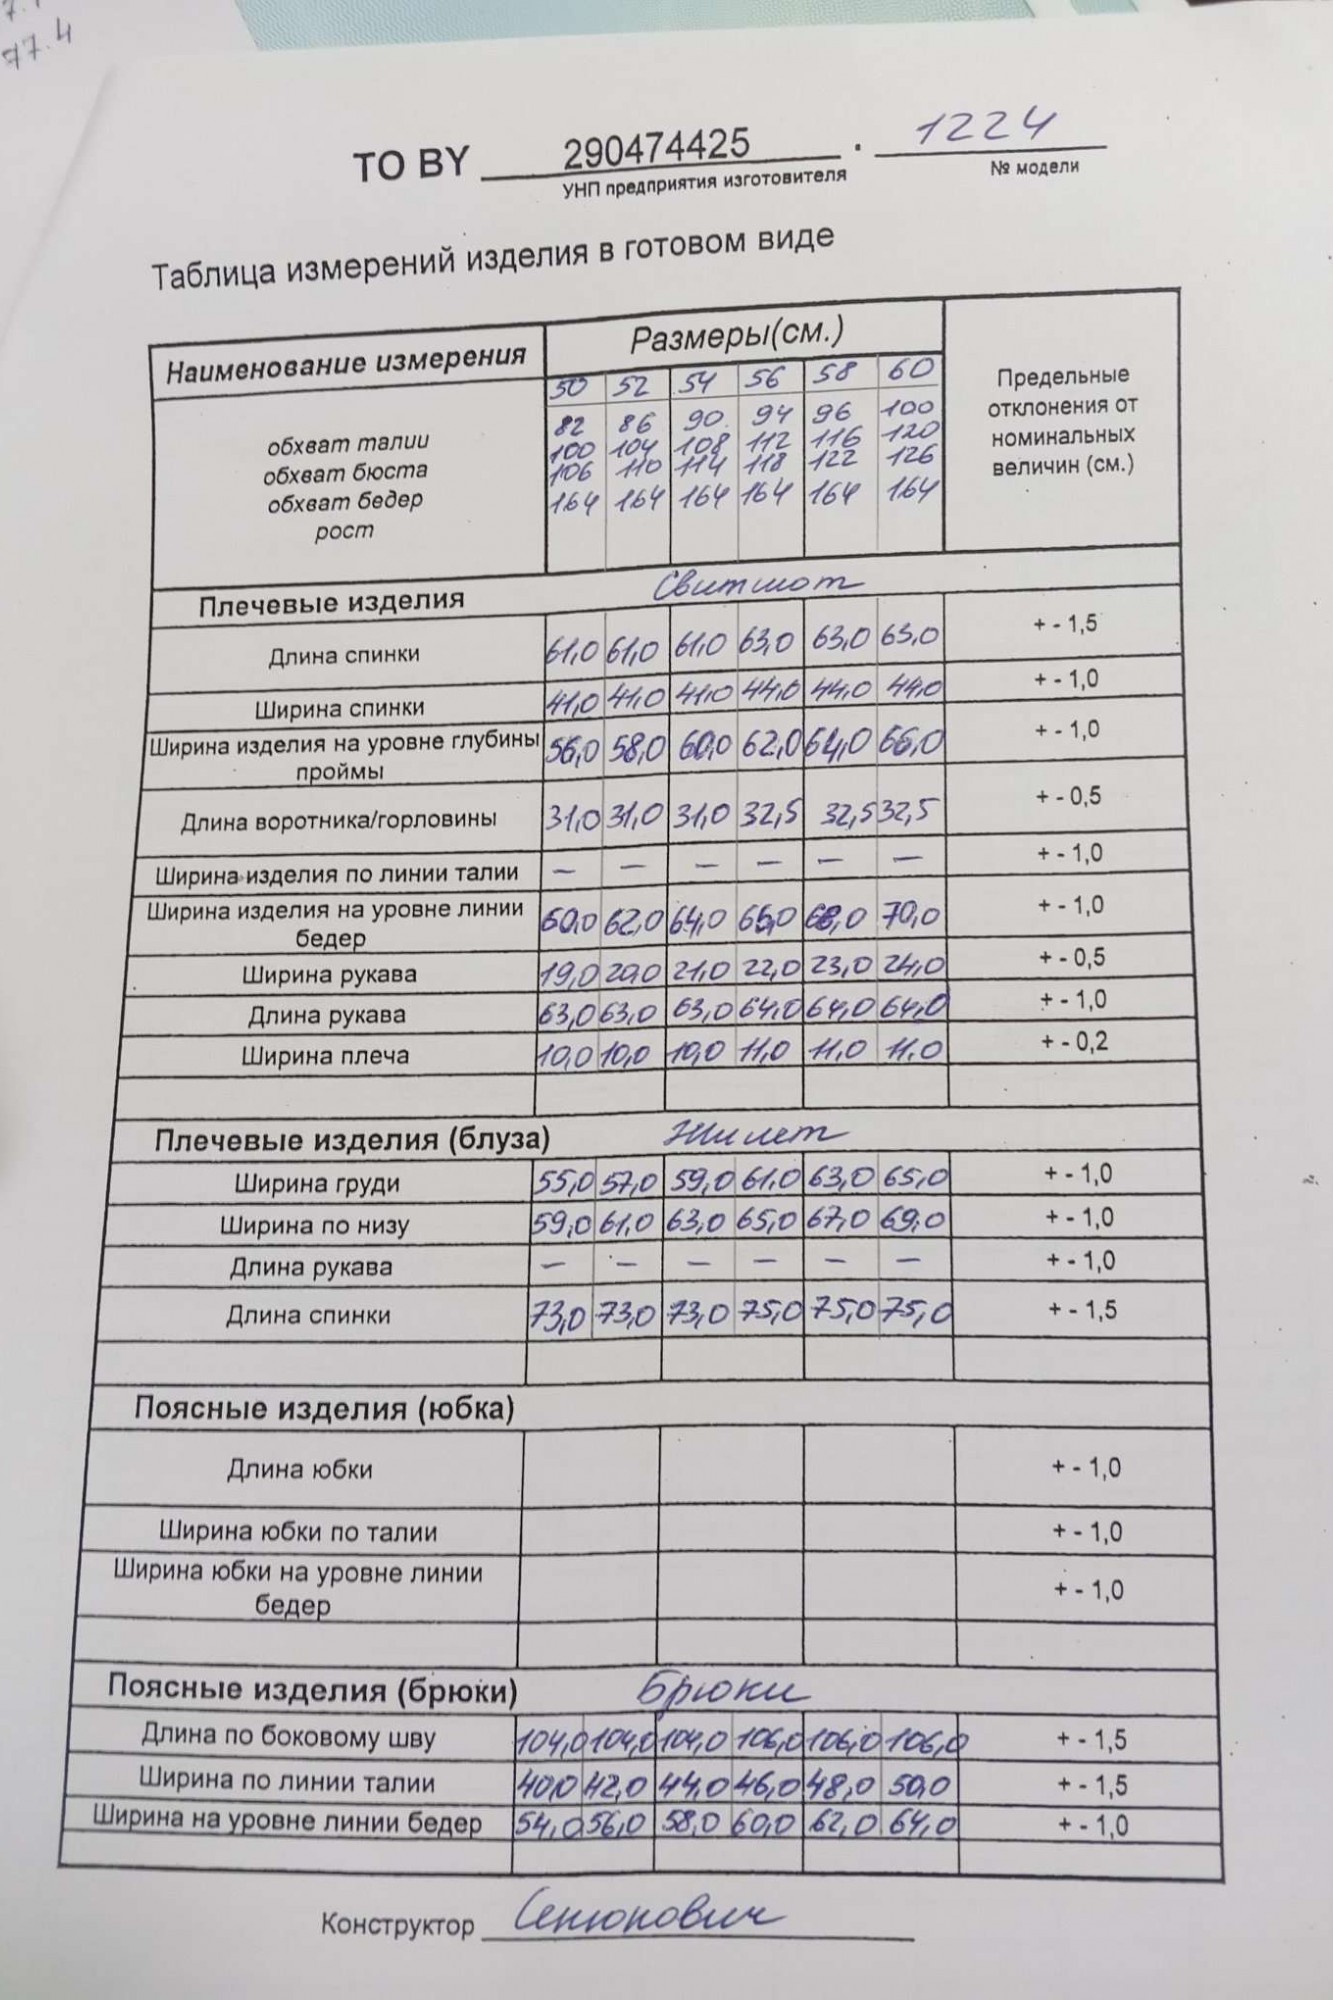 77.4
ТО BY 290474425 . 1224
УНП предприятия изготовителя № модели
Таблица измерений изделия в готовом виде
Наименование измерения Размеры(см.) Предельные отклонения от номинальных величин (см.)
50 52 54 56 58 60
обхват талии 82 86 90 94 96 100
обхват бюста 100 104 108 112 116 120
обхват бедер 106 110 114 118 122 126
рост 164 164 164 164 164 164
Плечевые изделия Свитшот
Длина спинки 61,0 61,0 61,0 63,0 63,0 63,0 + - 1,5
Ширина спинки 41,0 41,0 41,0 44,0 44,0 44,0 + - 1,0
Ширина изделия на уровне глубины проймы 56,0 58,0 60,0 62,0 64,0 66,0 + - 1,0
Длина воротника/горловины 31,0 31,0 31,0 32,5 32,5 32,5 + - 0,5
Ширина изделия по линии талии – – – – – – + - 1,0
Ширина изделия на уровне линии бедер 60,0 62,0 64,0 66,0 68,0 70,0 + - 1,0
Ширина рукава 19,0 20,0 21,0 22,0 23,0 24,0 + - 0,5
Длина рукава 63,0 63,0 63,0 64,0 64,0 64,0 + - 1,0
Ширина плеча 10,0 10,0 10,0 11,0 11,0 11,0 + - 0,2
Плечевые изделия (блуза) Жилет
Ширина груди 55,0 57,0 59,0 61,0 63,0 65,0 + - 1,0
Ширина по низу 59,0 61,0 63,0 65,0 67,0 69,0 + - 1,0
Длина рукава – – – – – – + - 1,0
Длина спинки 73,0 73,0 73,0 75,0 75,0 75,0 + - 1,5
Поясные изделия (юбка)
Длина юбки + - 1,0
Ширина юбки по талии + - 1,0
Ширина юбки на уровне линии бедер + - 1,0
Поясные изделия (брюки) Брюки
Длина по боковому шву 104,0 104,0 104,0 106,0 106,0 106,0 + - 1,5
Ширина по линии талии 40,0 42,0 44,0 46,0 48,0 50,0 + - 1,5
Ширина на уровне линии бедер 54,0 56,0 58,0 60,0 62,0 64,0 + - 1,0
Конструктор Сенюкович